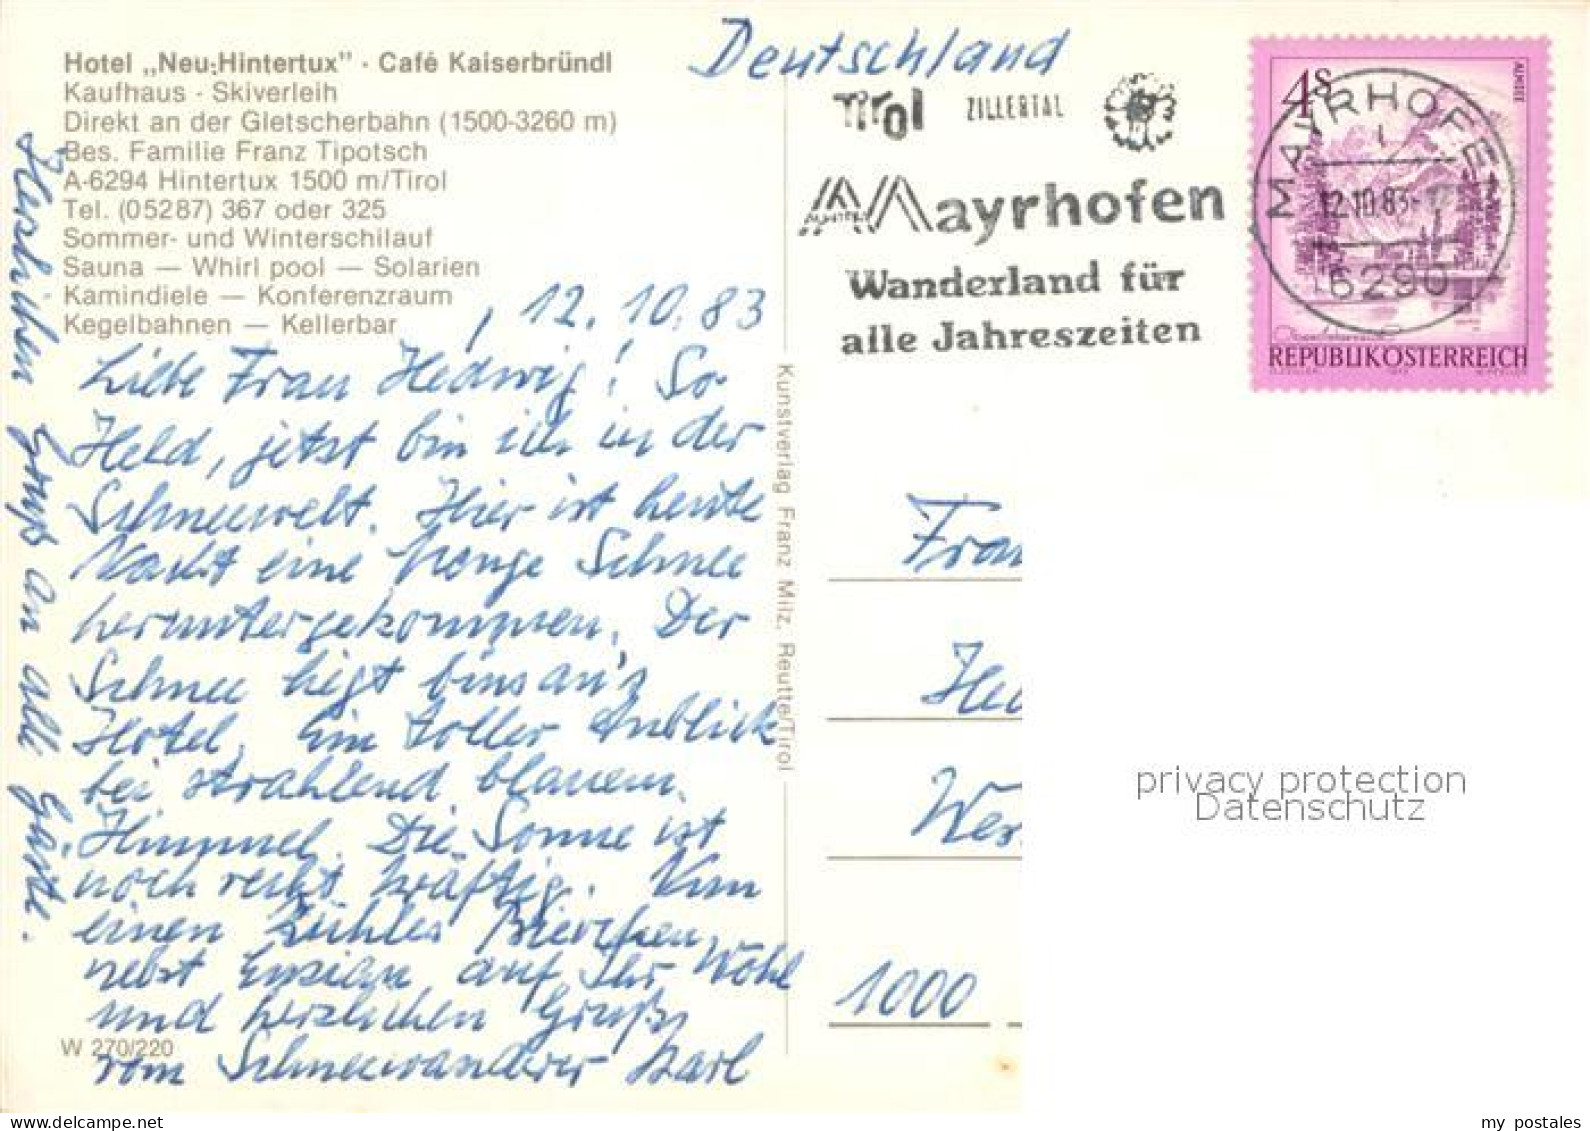 Hotel „Neu-Hintertux" · Café Kaiserbründl
Kaufhaus · Skiverleih
Direkt an der Gletscherbahn (1500-3260 m)
Bes. Familie Franz Tipotsch
A-6294 Hintertux 1500 m/Tirol
Tel. (05287) 367 oder 325
Sommer- und Winterschilauf
Sauna — Whirl pool — Solarien
Kamindiele — Konferenzraum
Kegelbahnen — Kellerbar
, 12. 10. 83
Liebe Frau Hedwig! So
Held, jetzt bin ich in der
Schneewelt. Hier ist heute
Nacht eine Menge Schnee
heruntergekommen. Der
Schnee liegt bins an's
Hotel. Ein toller Anblick
bei strahlend blauem
Himmel. Die Sonne ist
noch recht kräftig. Nun
einen kühles Bierchen
nebst Enzian auf Ihr Wohl
und herzlichen Gruß
vom Schneewanderer Karl
Herzlichen Gruß an alle Gäste.
W 270/220
Kunstverlag Franz Milz, Reutte/Tirol
Deutschland
Tirol ZILLERTAL
Mayrhofen
Wanderland für
alle Jahreszeiten
4S
ALMSEE
MAYRHOFE
12.10.83
6290
REPUBLIK ÖSTERREICH
Frau
Hed
Wes
1000
privacy protection
Datenschutz
my postales